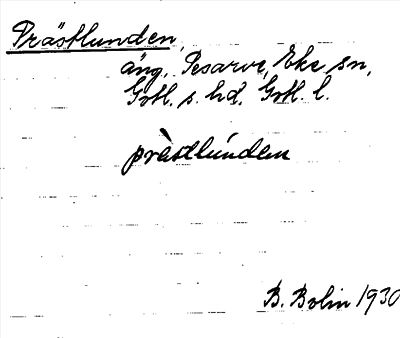 Prästlunden,
äng, Pesarve, Eke sn,
Gotl. s. hd. Gotl. l.
prästlúndem
B. Bolin 1930